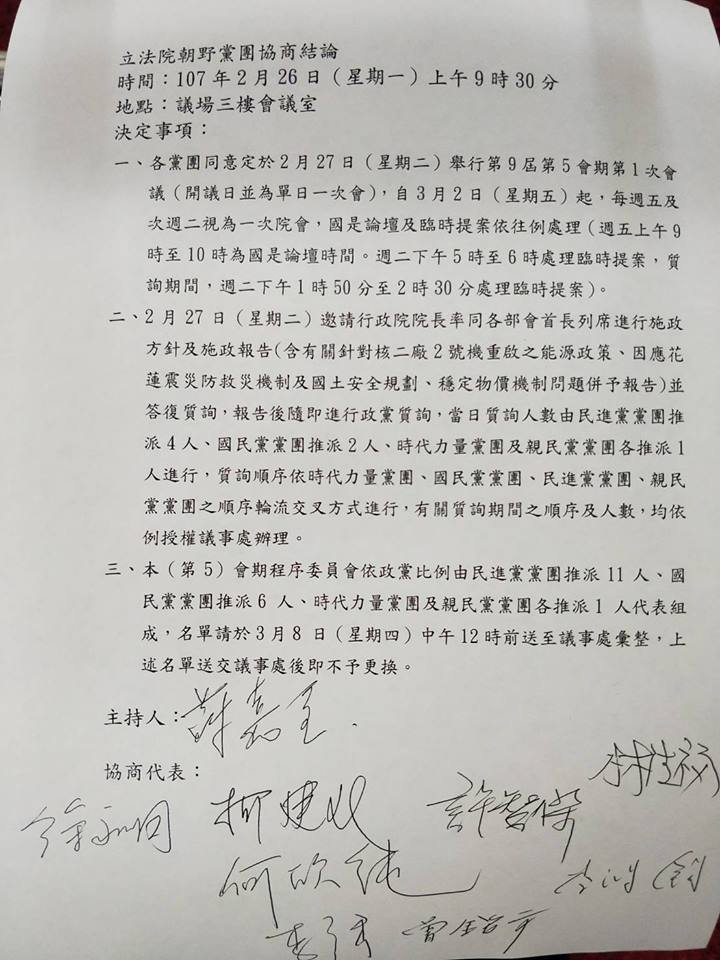 立法院朝野黨團協商結論
時間：107年2月26日（星期一）上午9時30分
地點：議場三樓會議室
決定事項：
一、各黨團同意定於2月27日（星期二）舉行第9屆第5會期第1次會
議（開議日並為單日一次會），自3月2日（星期五）起，每週五及
次週二視為一次院會，國是論壇及臨時提案依往例處理（週五上午9
時至10時為國是論壇時間。週二下午5時至6時處理臨時提案，質
詢期間，週二下午1時50分至2時30分處理臨時提案）。
二、2月27日（星期二）邀請行政院院長率同各部會首長列席進行施政
方針及施政報告(含有關針對核二廠2號機重啟之能源政策、因應花
蓮震災防救災機制及國土安全規劃、穩定物價機制問題併予報告)並
答復質詢，報告後隨即進行政黨質詢，當日質詢人數由民進黨黨團推
派4人、國民黨黨團推派2人、時代力量黨團及親民黨黨團各推派1
人進行，質詢順序依時代力量黨團、國民黨黨團、民進黨黨團、親民
黨黨團之順序輪流交叉方式進行，有關質詢期間之順序及人數，均依
例授權議事處辦理。
三、本（第5）會期程序委員會依政黨比例由民進黨黨團推派11人、國
民黨黨團推派6人、時代力量黨團及親民黨黨團各推派1人代表組
成，名單請於3月8日（星期四）中午12時前送至議事處彙整，上
述名單送交議事處後即不予更換。
主持人：蘇嘉全
協商代表：
徐永明 柯建銘 許智傑
何欣純 李鴻鈞
曾銘宗